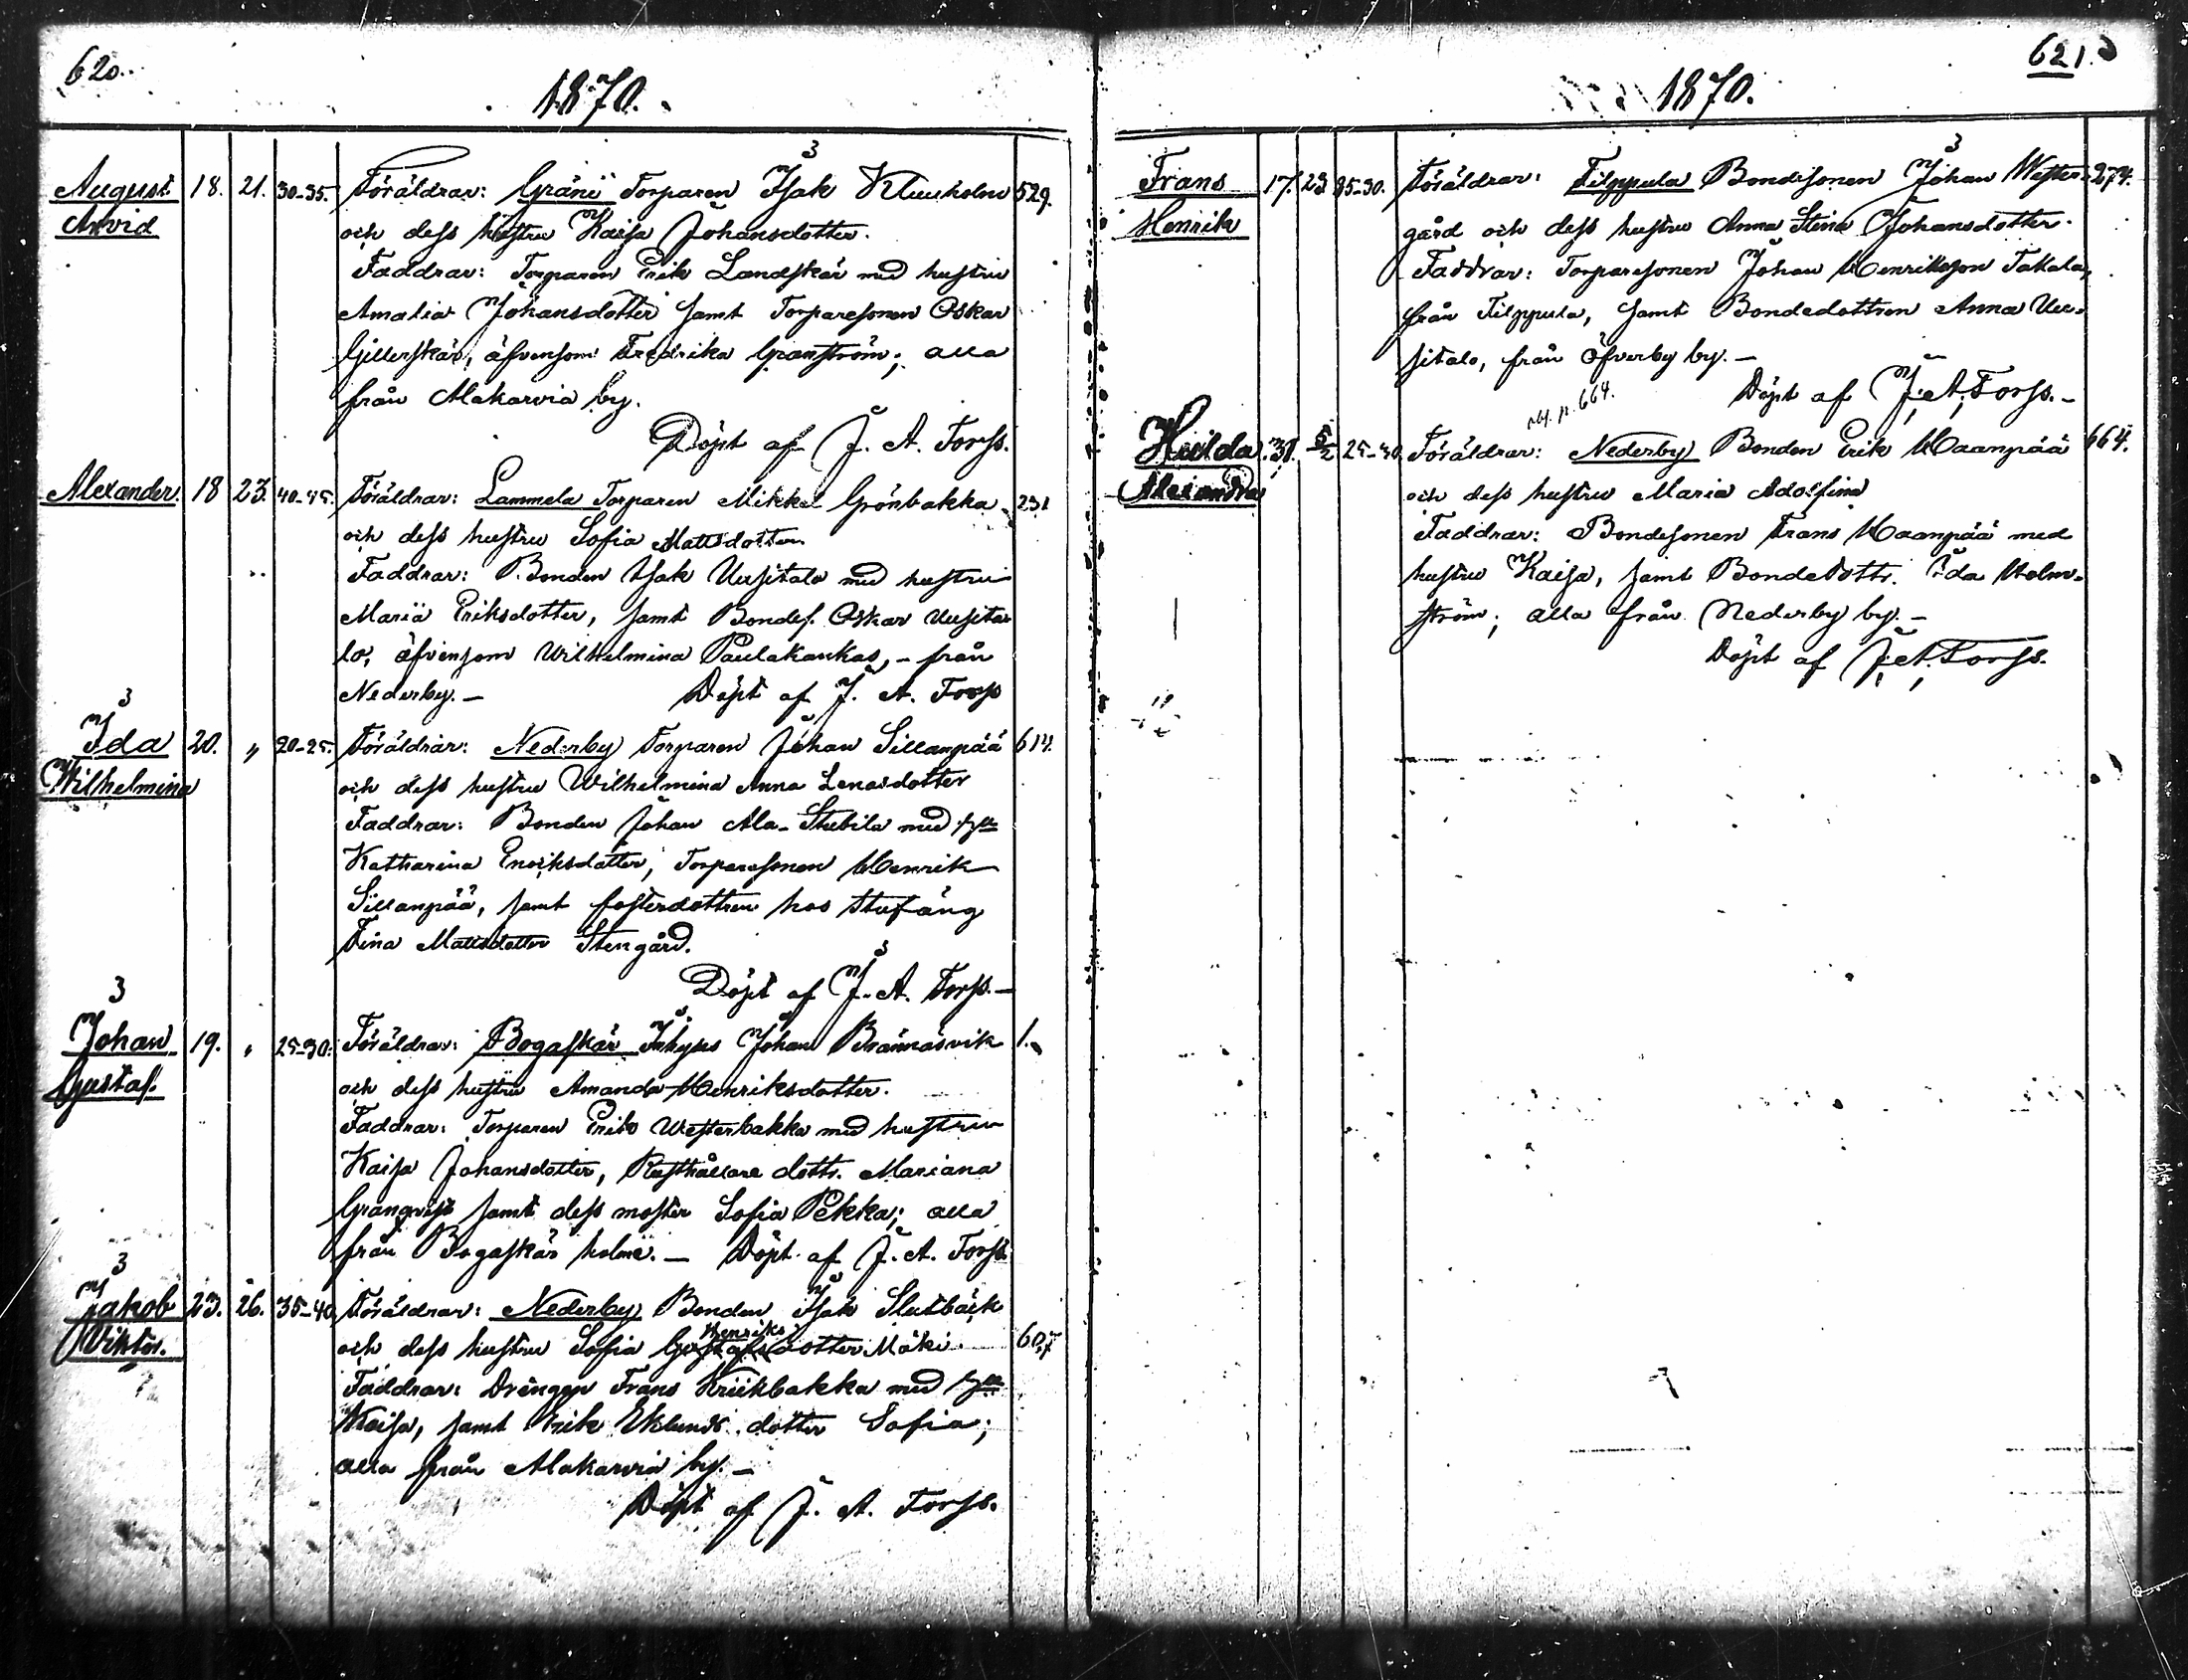 620.
1870.
August 18. 21. 30-35. Föräldrar: Gränö Torparen Isak Kluuholm 529.
Arvid och dess hustru Kaisa Johansdotter.
Faddrar: Torparen Erik Landskär med hustru
Amalia Johansdotter samt Torparesonen Oskar
Gillerskär, äfvensom Fredrika Granström; alla
från Makarvia by.
Döpt af J. A. Forss.
Alexander. 18 23. 40-45. Föräldrar: Lammela Torparen Mikkel Grönbakka 231
och dess hustru Sofia Mattsdotter
Faddrar: Bonden Isak Uusitalo med hustru
Maria Eriksdotter, samt Bondes. Oskar Uusita-
lo, äfvensom Wilhelmina Paulakankas, - från
Nederby. - Döpt af J. A. Forss
Ida 20. " 20-25. Föräldrar: Nederby Torparen Johan Sillanpää 614.
Wilhelmina och dess hustru Wilhelmina Anna Lenasdotter
Faddrar: Bonden Johan Ala-Stubila med
Katharina Eriksdotter, Torparesonen Henrik
Sillanpää, samt fosterdottren hos
Fina Mattsdotter Stengård.
Döpt af J. A. Forss. -
Johan 19. " 25-30. Föräldrar: Bogaskär Inhyses Johan Brännäsvik 1.
Gustaf. och dess hustru Amanda Henriksdotter.
Faddrar: Torparen Erik Westerbakka med hustru
Kaisa Johansdotter, Rusthållare dottr. Mariana
Granqvist samt dess moster Sofia Pekka; alla
från Bogaskär holme. - Döpt af J. A. Forss.
Jakob 23. 26. 35-40 Föräldrar: Nederby Bonden Isak Slutbäck
Henriks
Viktor. och dess hustru Sofia Gustafsdotter Mäki. 607
Faddrar: Drängen Frans Kriikbakka med
Kaisa, samt Erik Eklunds dotter Sofia;
alla från Makarvia by. -
Döpt af J. A. Forss.
621.
1870.
Frans 17. 23 25-30. Föräldrar: Filppula Bondesonen Johan Wester- 274.
Henrik gård och dess hustru Anna Stina Johansdotter.
Faddrar: Torparesonen Johan Henriksson Takala,
från Filppula, samt Bondedottren Anna Uu-
sitalo, från Öfverby by. -
Döpt af J. A. Forss. -
p. 664.
Hulda 31. 5/2 25-30. Föräldrar: Nederby Bonden Erik Haanpää 664.
Alexandra och dess hustru Maria Adolfina
Faddrar: Bondesonen Frans Haanpää med
hustru Kaisa, samt Bondedottr. Ida Holm-
ström; alla från Nederby by. -
Döpt af J. A. Forss.